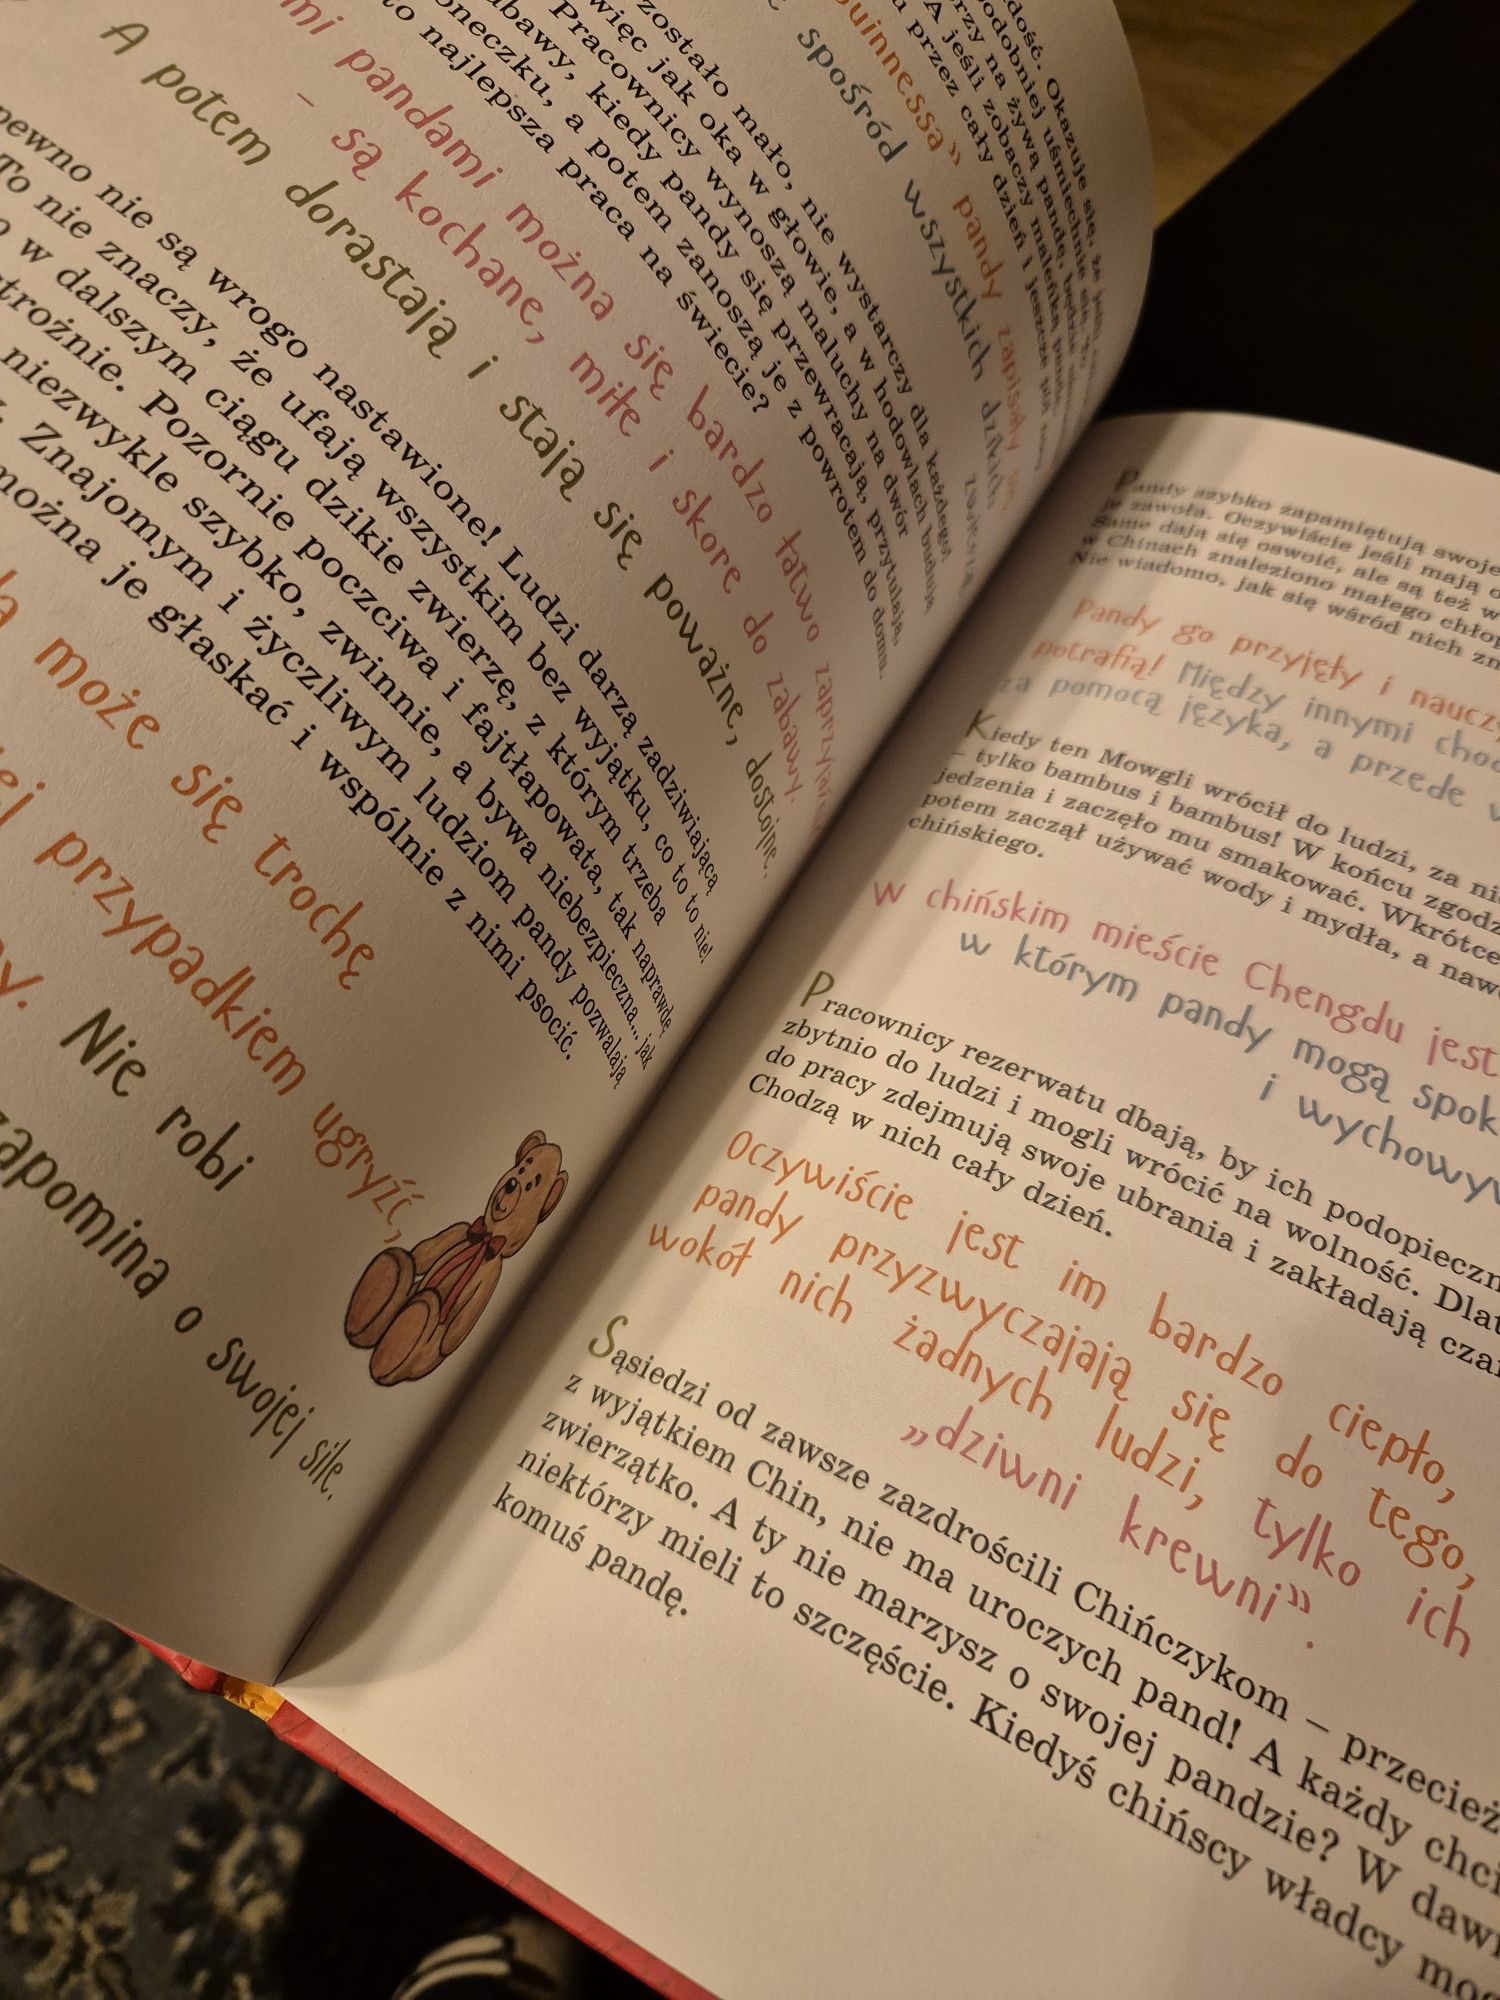 adość. Okazuje się, że jeśli
podobniej uśmiechnie się. To
rzy na żywą pandę, będzie
A jeśli zobaczy maleńką pandę,
u przez cały dzień i jeszcze pół nocy
Guinnessa” pandy zapisały się,
spośród wszystkich dzikich
zwierząt.
zostało mało, nie wystarczy dla każdego!
więc jak oka w głowie, a w hodowlach budują
Pracownicy wynoszą maluchy na dwór
abawy, kiedy pandy się przewracają, przytulają,
oneczku, a potem zanoszą je z powrotem do domu.
to najlepsza praca na świecie?
mi pandami można się bardzo łatwo zaprzyjaźnić
– są kochane, miłe i skore do zabawy.
A potem dorastają i stają się poważne, dostojne.
pewno nie są wrogo nastawione! Ludzi darzą zadziwiającą
To nie znaczy, że ufają wszystkim bez wyjątku, co to to nie!
o w dalszym ciągu dzikie zwierzę, z którym trzeba
strożnie. Pozornie poczciwa i fajtłapowata, tak naprawdę
niezwykle szybko, zwinnie, a bywa niebezpieczna... jak
Znajomym i życzliwym ludziom pandy pozwalają
można je głaskać i wspólnie z nimi psocić.
może się trochę
ej przypadkiem ugryźć,
y. Nie robi
zapomina o swojej sile.
Pandy szybko zapamiętują swoje
je zawoła. Oczywiście jeśli mają o
Same dają się oswoić, ale są też w
w Chinach znaleziono małego chłop
Nie wiadomo, jak się wśród nich zn
Pandy go przyjęły i nauczy
potrafią! Między innymi choc
za pomocą języka, a przede w
Kiedy ten Mowgli wrócił do ludzi, za ni
– tylko bambus i bambus! W końcu zgodz
jedzenia i zaczęło mu smakować. Wkrótce
potem zaczął używać wody i mydła, a nawe
chińskiego.
W chińskim mieście Chengdu jest
w którym pandy mogą spok
i wychowyw
Pracownicy rezerwatu dbają, by ich podopieczn
zbytnio do ludzi i mogli wrócić na wolność. Dlat
do pracy zdejmują swoje ubrania i zakładają czar
Chodzą w nich cały dzień.
Oczywiście jest im bardzo ciepło,
pandy przyzwyczajają się do tego,
wokół nich żadnych ludzi, tylko ich
„dziwni krewni”.
Sąsiedzi od zawsze zazdrościli Chińczykom – przecież
z wyjątkiem Chin, nie ma uroczych pand! A każdy chci
zwierzątko. A ty nie marzysz o swojej pandzie? W dawn
niektórzy mieli to szczęście. Kiedyś chińscy władcy mog
komuś pandę.